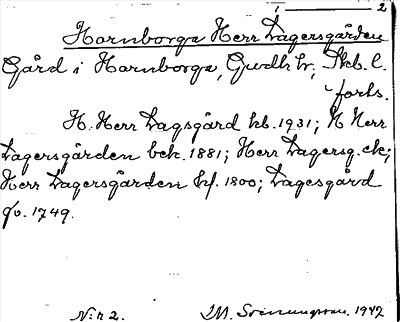 1 2
Hornborga Herr Dagersgården
Gård i Hornborga, Gudh. hr, Skb. l.
forts.
H. Herr Dagsgård hb. 1931; H Herr
Dagersgården bek. 1881; Herr Dagersg. ek;
Herr Dagersgården hf. 1800; Dagesgård
gv. 1749.
N:r 2.
1942